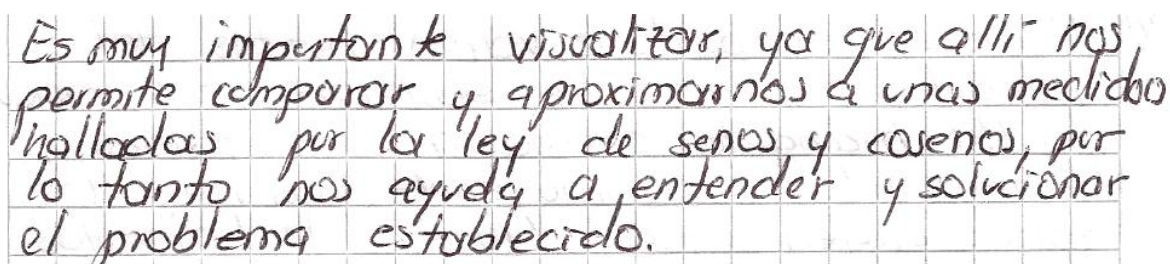 Es muy importante visualizar, ya que allí nos
permite comparar y aproximarnos a unas medidas
halladas por la ley de senos y cosenos, por
lo tanto nos ayuda a entender y solucionar
el problema establecido.